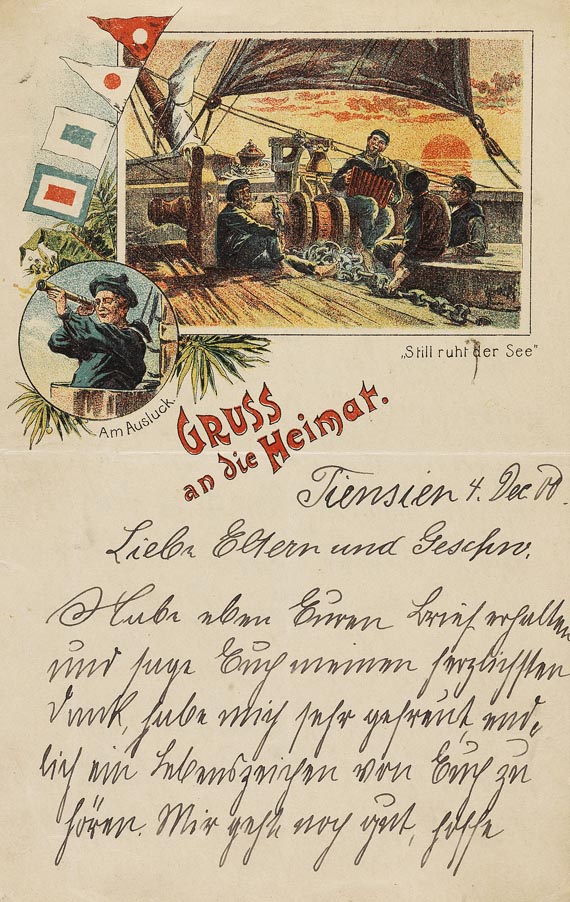 „Still ruht der See"
Am Ausluck.
GRUSS
an die Heimat.
Tiensien 4. Dec. 00.
Liebe Eltern und Geschw.
Habe eben Euren Brief erhalten
und sage Euch meinen herzlichsten
Dank, habe mich sehr gefreut, end-
lich ein Lebenszeichen von Euch zu
hören. Mir geht noch gut, hoffe